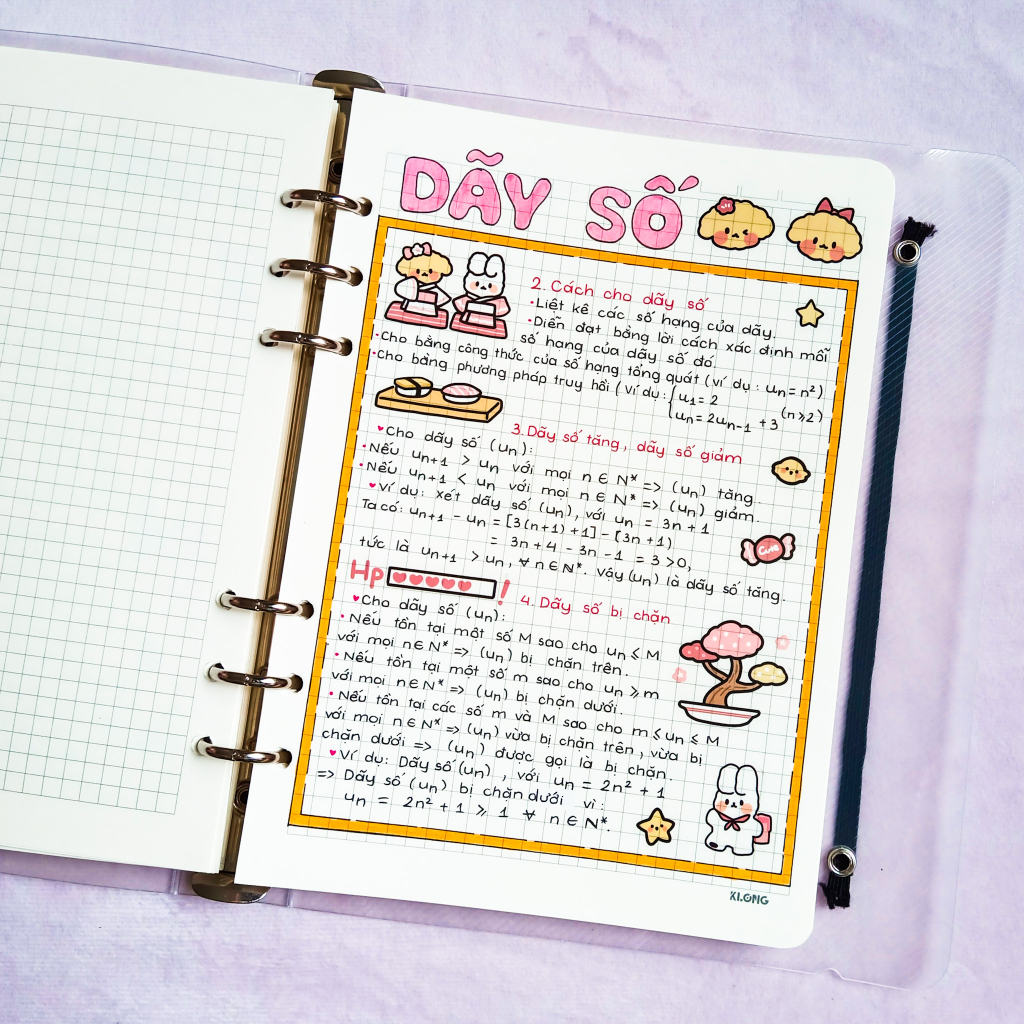 DÃY SỐ
2. Cách cho dãy số
•Liệt kê các số hạng của dãy.
•Diễn đạt bằng lời cách xác định mỗi
số hạng của dãy số đó.
•Cho bằng công thức của số hạng tổng quát (ví dụ: uₙ = n²)
•Cho bằng phương pháp truy hồi (ví dụ: {u₁ = 2
uₙ = 2uₙ₋₁ + 3 (n ⩾ 2)
3. Dãy số tăng, dãy số giảm
♥Cho dãy số (uₙ):
•Nếu uₙ₊₁ > uₙ với mọi n ∈ N* => (uₙ) tăng.
•Nếu uₙ₊₁ < uₙ với mọi n ∈ N* => (uₙ) giảm.
♥Ví dụ: Xét dãy số (uₙ), với uₙ = 3n + 1
Ta có: uₙ₊₁ - uₙ = [3(n+1) + 1] - [3n + 1)
= 3n + 4 - 3n - 1 = 3 > 0,
tức là uₙ₊₁ > uₙ, ∀ n ∈ N*. Vậy (uₙ) là dãy số tăng.
Cute
Hp !
4. Dãy số bị chặn
♥Cho dãy số (uₙ):
•Nếu tồn tại một số M sao cho uₙ ⩽ M
với mọi n ∈ N* => (uₙ) bị chặn trên.
•Nếu tồn tại một số m sao cho uₙ ⩾ m
với mọi n ∈ N* => (uₙ) bị chặn dưới.
•Nếu tồn tại các số m và M sao cho m ⩽ uₙ ⩽ M
với mọi n ∈ N* => (uₙ) vừa bị chặn trên, vừa bị
chặn dưới => (uₙ) được gọi là bị chặn.
♥Ví dụ: Dãy số (uₙ), với uₙ = 2n² + 1
=> Dãy số (uₙ) bị chặn dưới vì:
uₙ = 2n² + 1 ⩾ 1 ∀ n ∈ N*.
KLONG